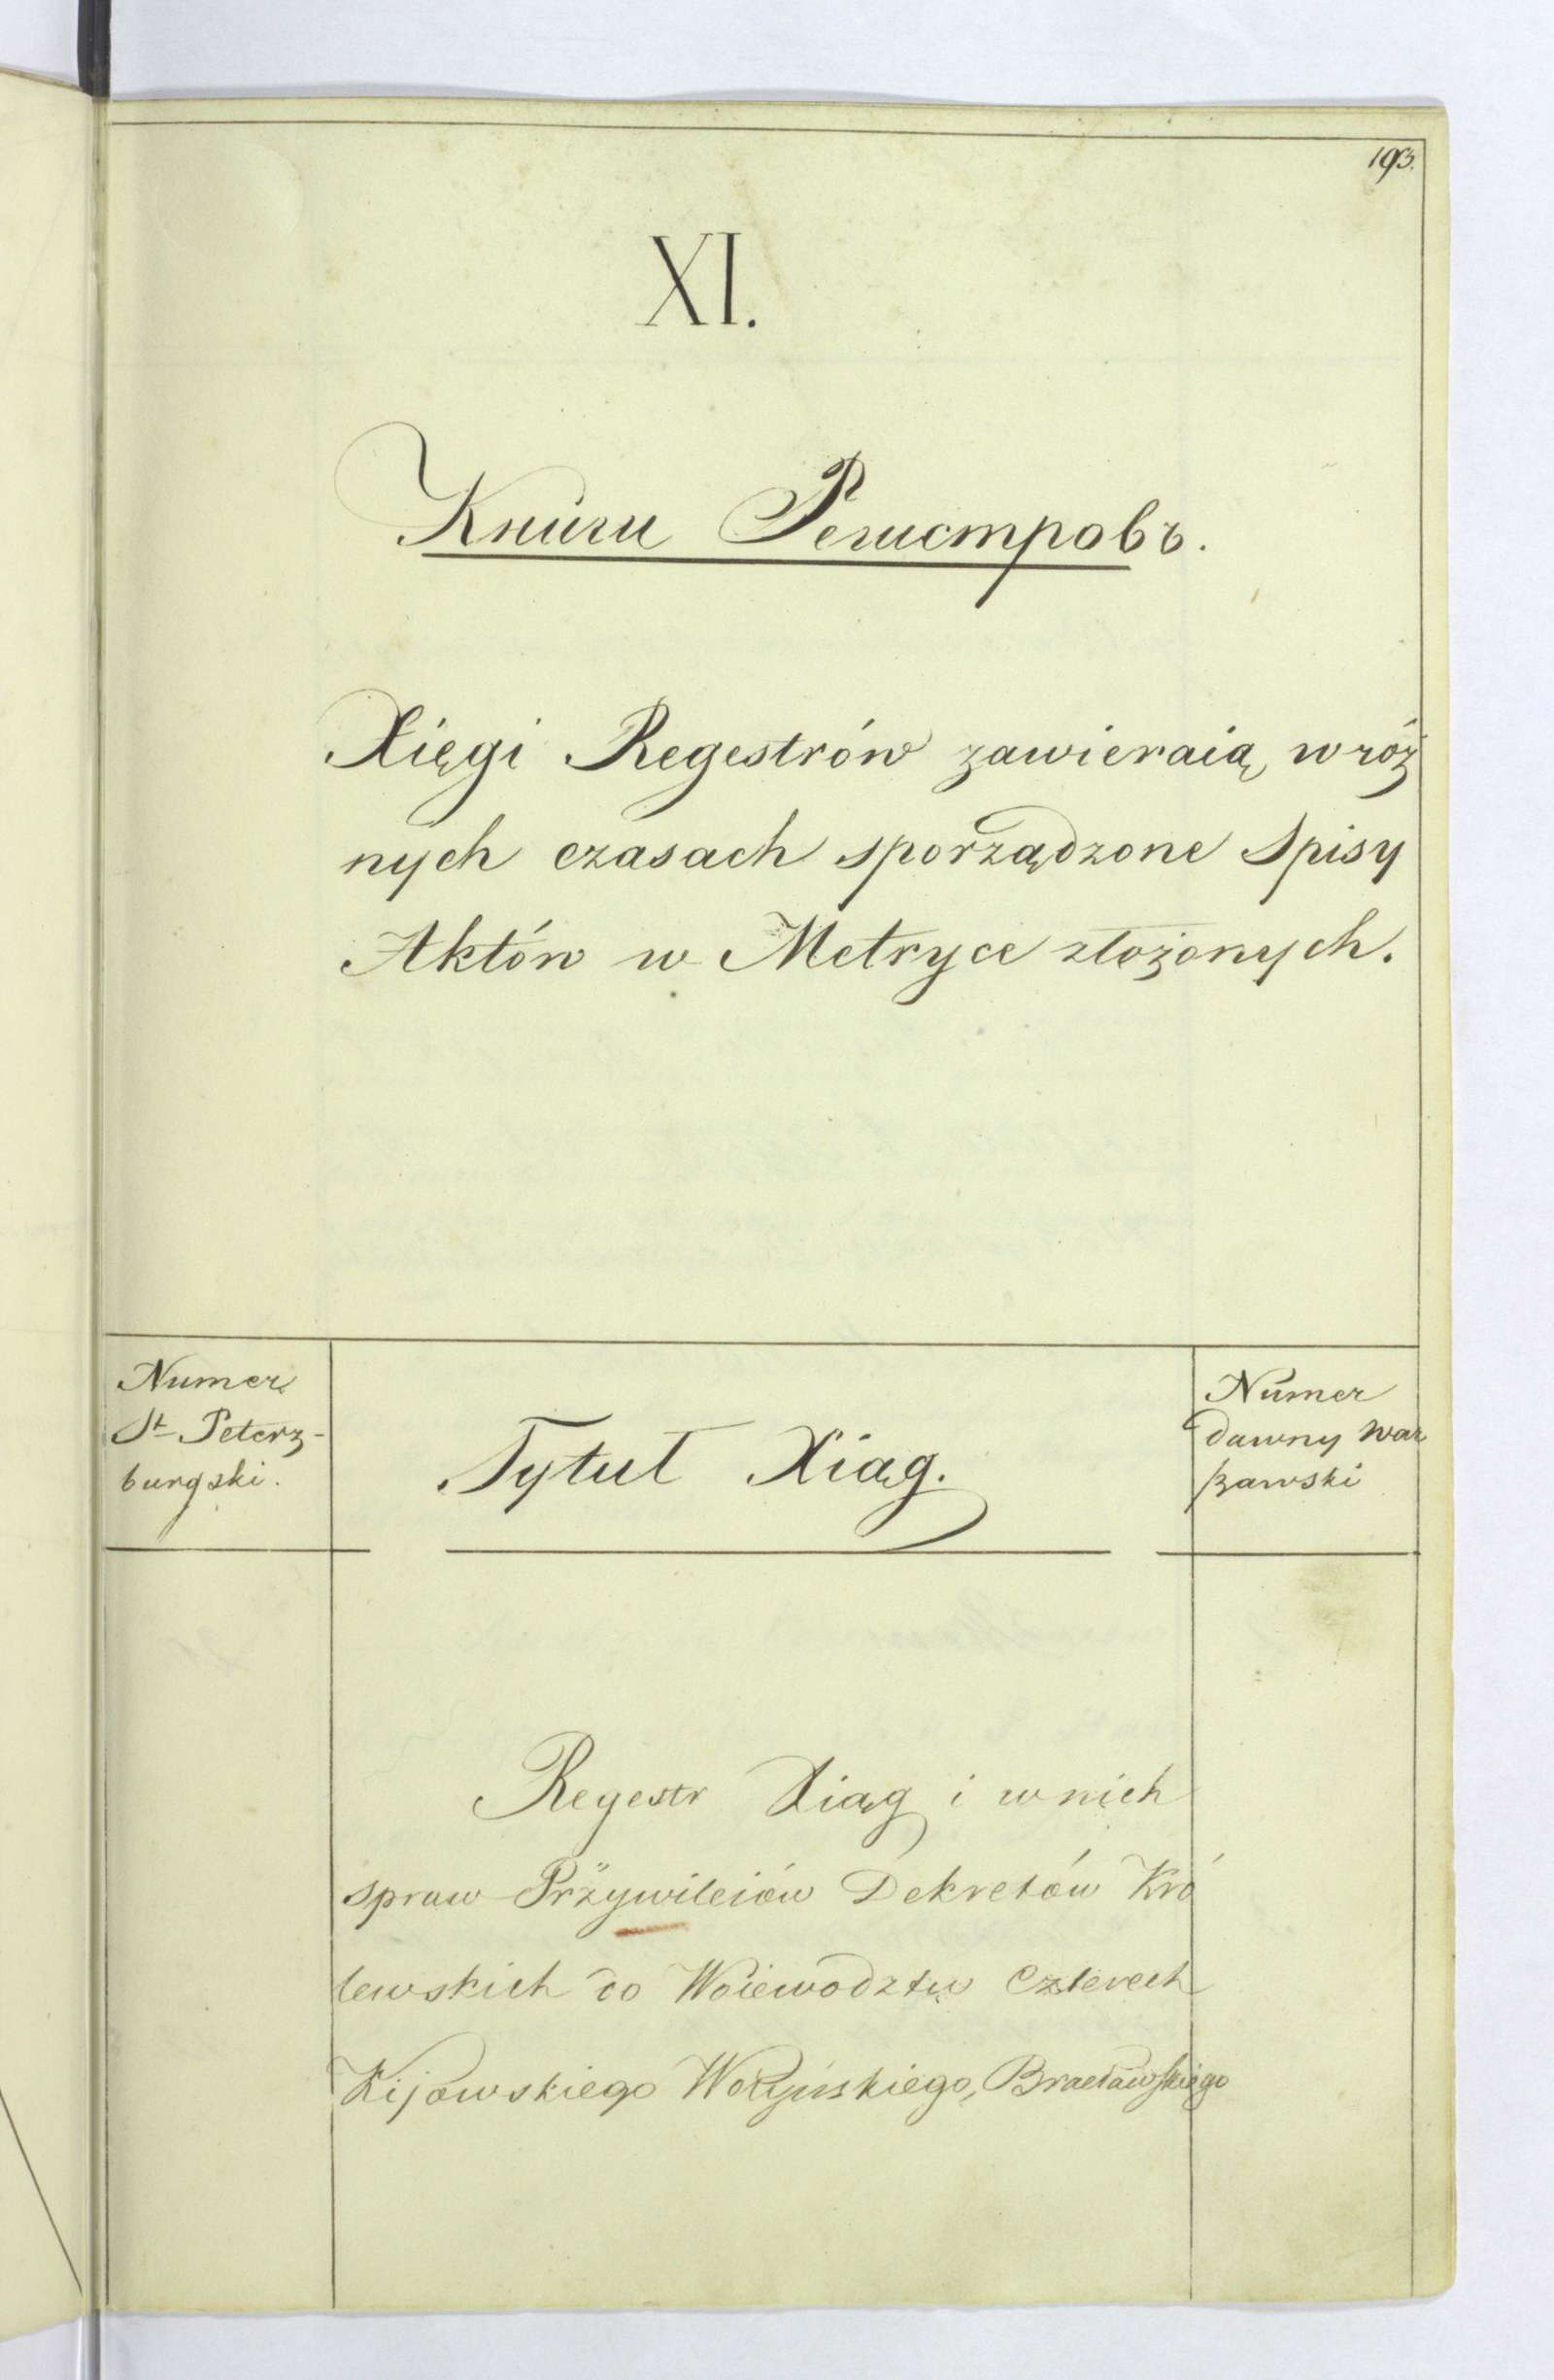 193.
XI.
Книги Регистровъ.
Xięgi Regestrów zawieraią w róż
nych czasach sporządzone Spisy
Aktów w Metryce złożonych.
Numer
St Peterz-
burgski.
Tytuł Xiąg.
Numer
dawny War
szawski
Regestr Xiąg i w nich
spraw Przywileiów Dekretów Kró
lewskich do Woiewodztw Czterech
Kijowskiego Wołyńskiego, Bracławskiego